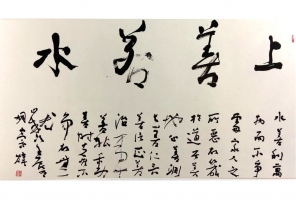 上善若水
水善利萬
物而不爭
處眾人之
所惡故幾
於道居善
地心善淵
與善仁言
善信正善
治事善
能動
善時夫唯不
爭故無
尤